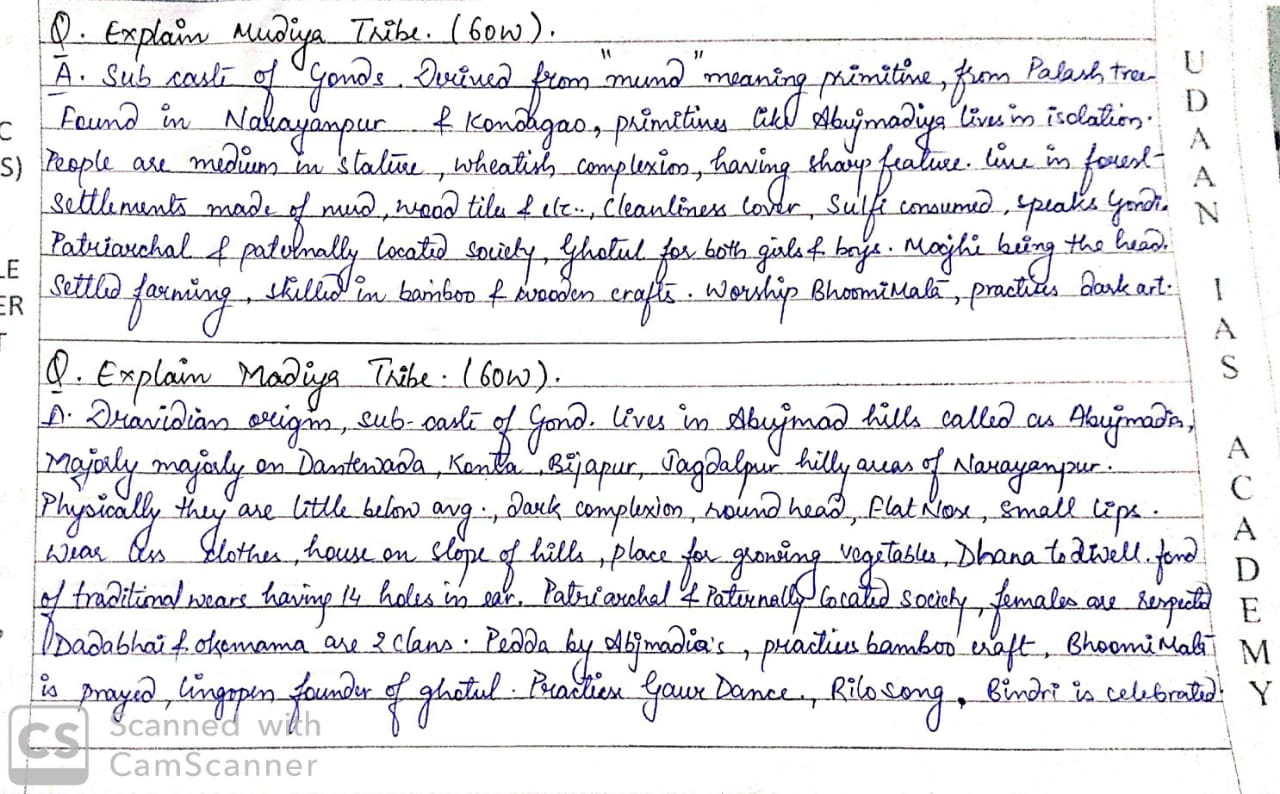 Q. Explain Mudiya Tribe. (60w).
A. Sub caste of Gonds. Derived from "mund" meaning primitive, from Palash tree
Found in Narayanpur & Kondagao, primitives like Abujmadiya lives in isolation.
People are medium in stature, wheatish complexion, having sharp feature. live in forest-
Settlements made of mud, wood tiles & etc.., Cleanliness lover, Sulfi consumed, speaks Gondi.
Patriarchal & paternally located society, Ghotul for both girls & boys. Majhi being the head.
Settled farming, skilled in bamboo & wooden crafts. Worship BhoomiMata, practices dark art.
Q. Explain Madiya Tribe. (60w).
A. Dravidian origin, sub-caste of Gond. lives in Abujmad hills called as Abujmadia,
Majorly majorly on Dantewada, Konta, Bijapur, Jagdalpur hilly areas of Narayanpur.
Physically they are little below avg., dark complexion, round head, Flat Nose, Small lips.
Wear less clothes, house on slope of hills, place for growing vegetables, Dhana to dwell. fond
of traditional wears having 14 holes in ear. Patriarchal & Paternally located society, females are respected
Dadabhai & okemama are 2 clans. Pedda by Abjmadia's, practices bamboo craft, BhoomiMata
is prayed, lingopen founder of ghotul. Practices Gaur Dance., Rilo song, Bindri is celebrated.
UDAAN IAS ACADEMY
C
S)
LE
ER
T
CS Scanned with
CamScanner